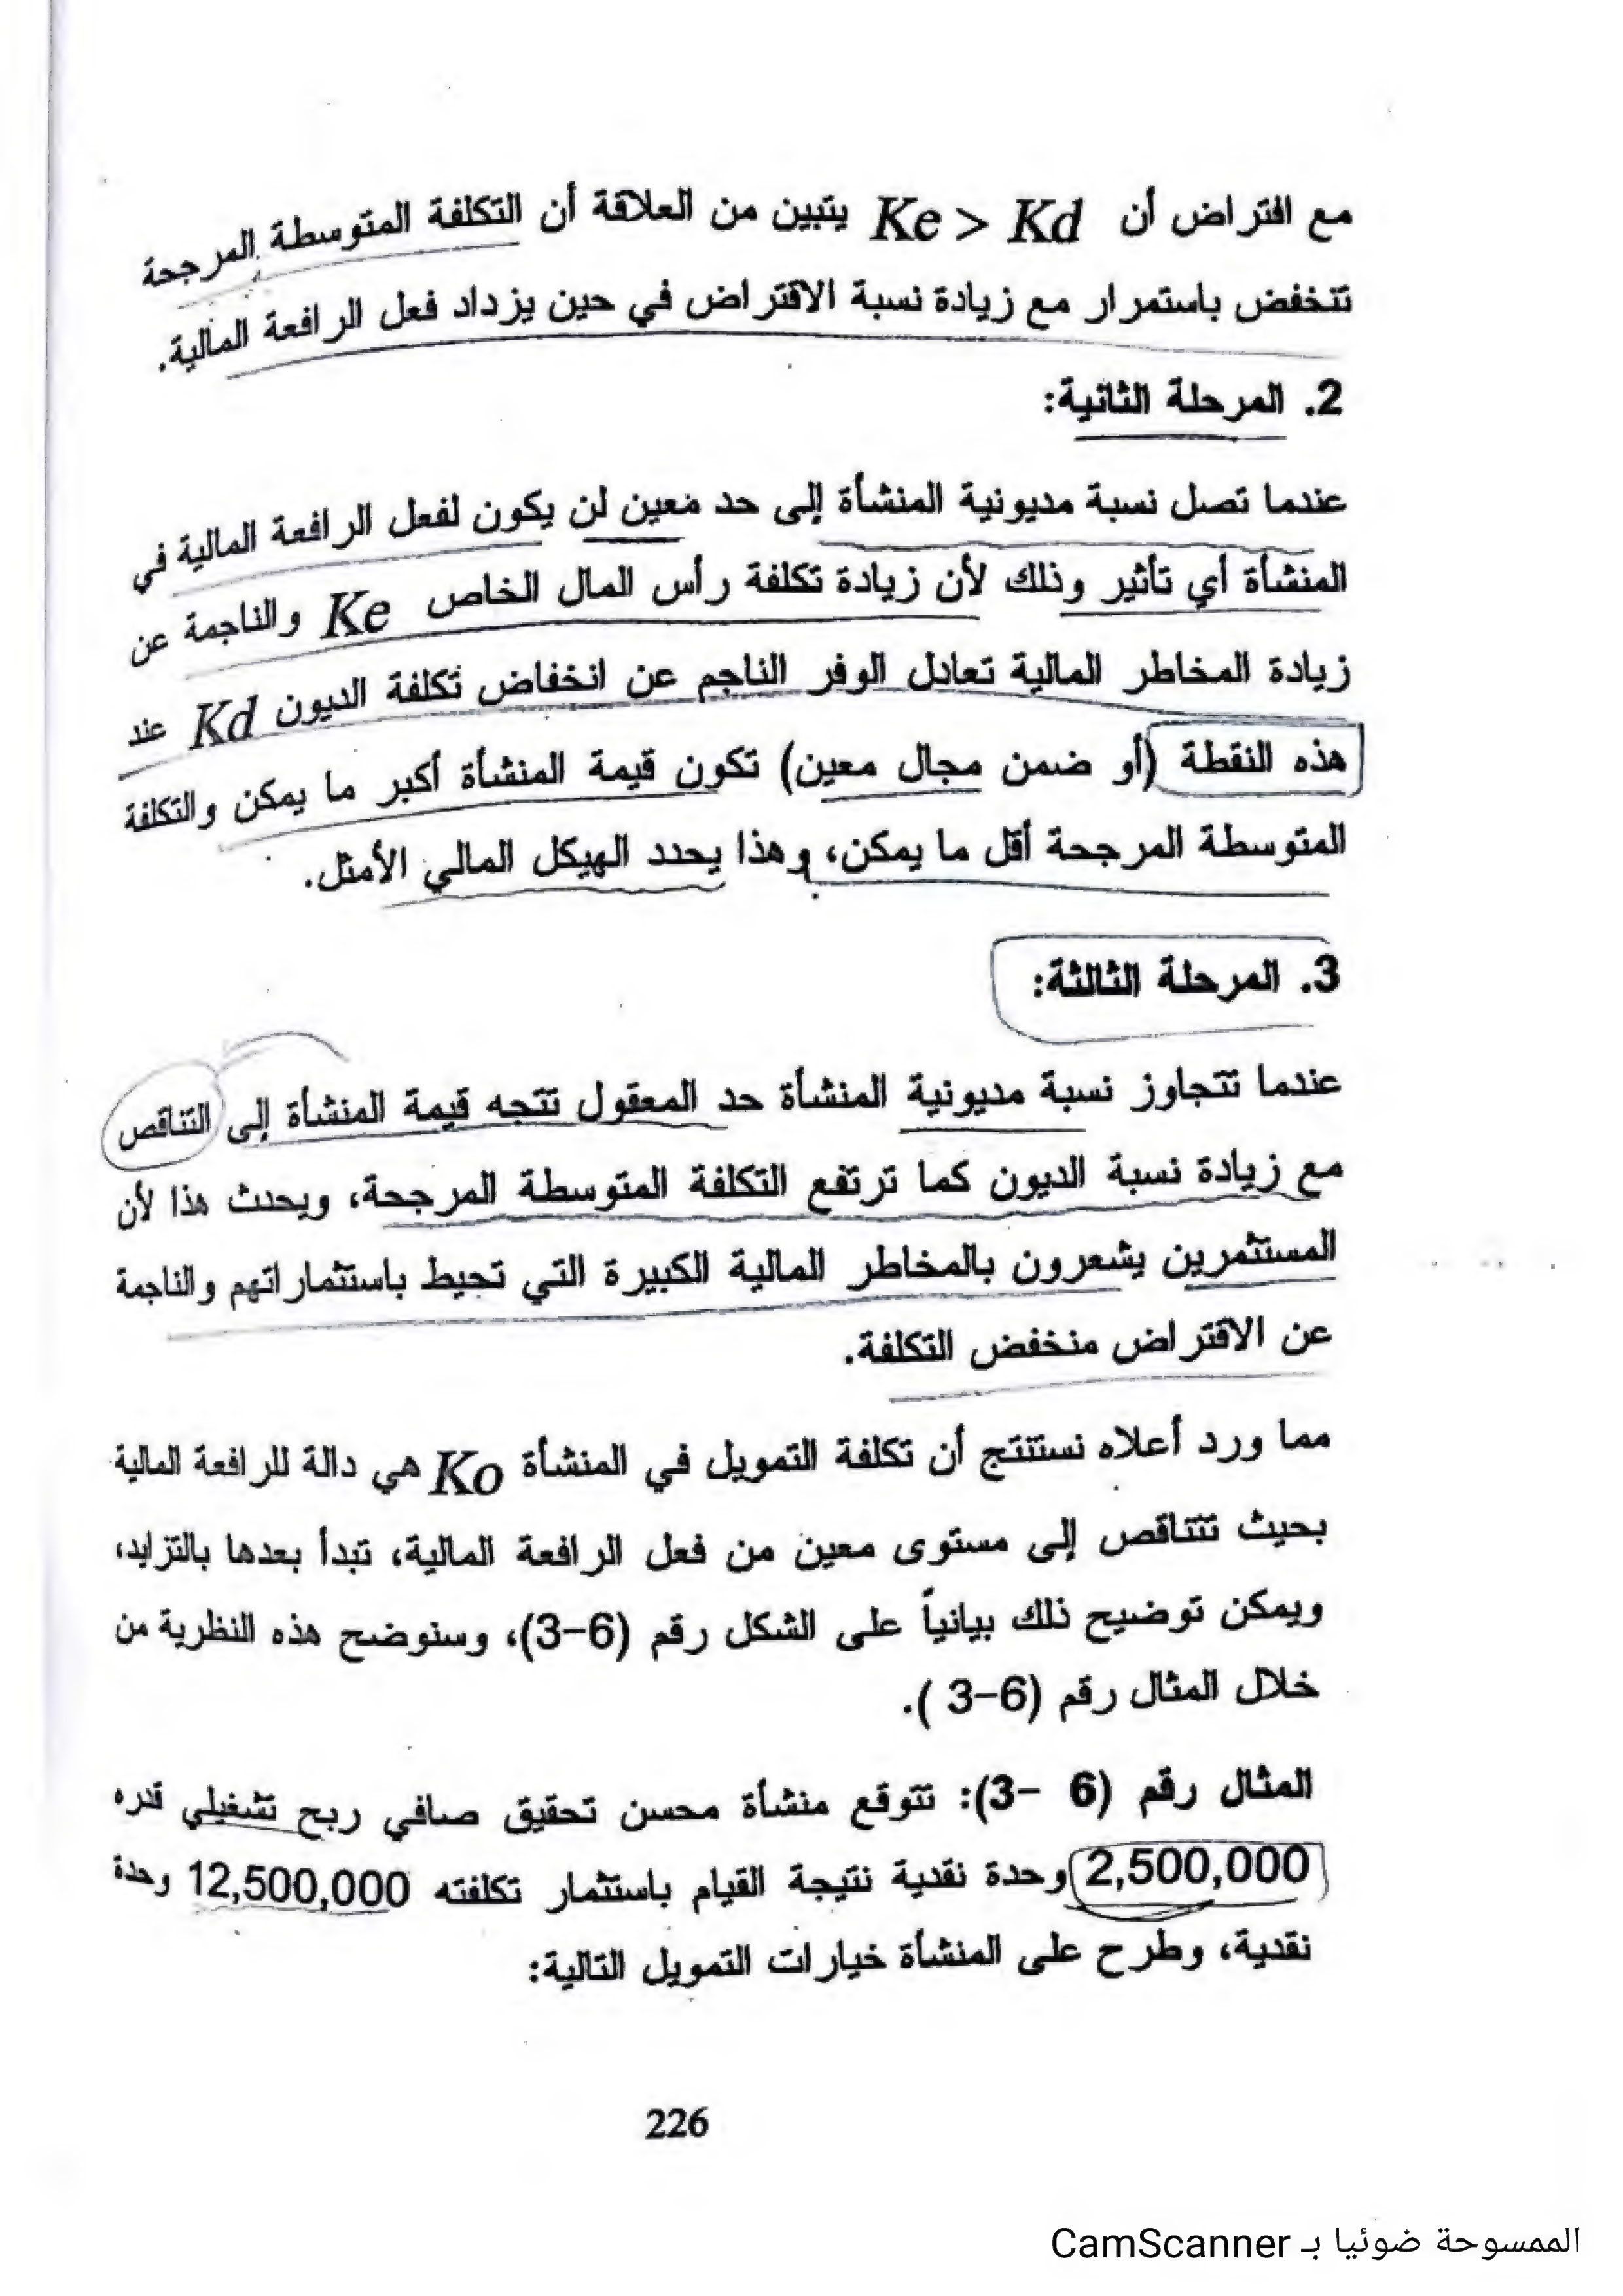 مع افتراض أن Ke > Kd يتبين من العلاقة أن التكلفة المتوسطة المرجحة
تنخفض باستمرار مع زيادة نسبة الاقتراض في حين يزداد فعل الرافعة المالية.
2. المرحلة الثانية:
عندما تصل نسبة مديونية المنشأة إلى حد معين لن يكون لفعل الرافعة المالية في
المنشأة أي تأثير وذلك لأن زيادة تكلفة رأس المال الخاص Ke والناجمة عن
زيادة المخاطر المالية تعادل الوفر الناجم عن انخفاض تكلفة الديون Kd عند
هذه النقطة (أو ضمن مجال معين) تكون قيمة المنشأة أكبر ما يمكن والتكلفة
المتوسطة المرجحة أقل ما يمكن، وهذا يحدد الهيكل المالي الأمثل.
3. المرحلة الثالثة:
عندما تتجاوز نسبة مديونية المنشأة حد المعقول تتجه قيمة المنشأة إلى التناقص
مع زيادة نسبة الديون كما ترتفع التكلفة المتوسطة المرجحة، ويحدث هذا لأن
المستثمرين يشعرون بالمخاطر المالية الكبيرة التي تحيط باستثماراتهم والناجمة
عن الاقتراض منخفض التكلفة.
مما ورد أعلاه نستنتج أن تكلفة التمويل في المنشأة Ko هي دالة للرافعة المالية
بحيث تتناقص إلى مستوى معين من فعل الرافعة المالية، تبدأ بعدها بالتزايد،
ويمكن توضيح ذلك بيانياً على الشكل رقم (6-3)، وسنوضح هذه النظرية من
خلال المثال رقم (6-3 ).
المثال رقم (6 -3): تتوقع منشأة محسن تحقيق صافي ربح تشغيلي قدره
2,500,000 وحدة نقدية نتيجة القيام باستثمار تكلفته 12,500,000 وحدة
نقدية، وطرح على المنشأة خيارات التمويل التالية:
226
الممسوحة ضوئيا بـ CamScanner